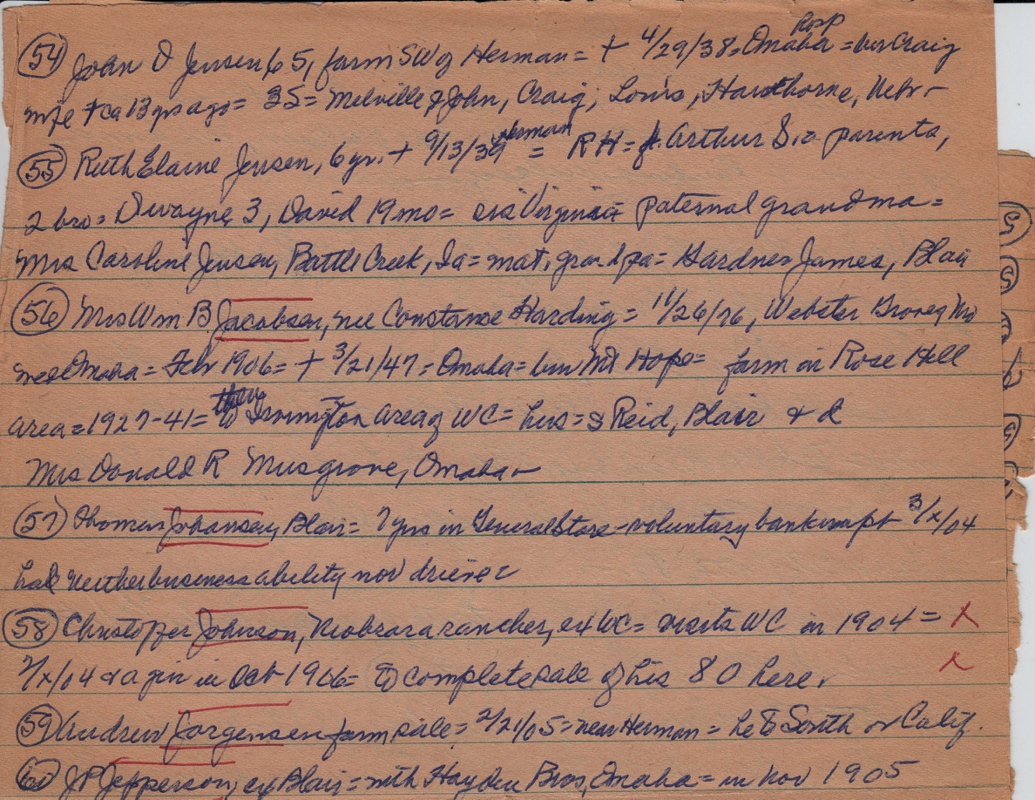 (54) John O Jensen, 65, farm SW of Herman = + 4/29/38 = Omaha Hosp = bur Craig
wife + ca 13 yrs ago = 3S = Melville & John, Craig; Louis, Hawthorne, Nebr -
(55) Ruth Elaine Jensen, 6 yr. + 9/13/39 Herman = RH = Arthur S is parents,
2 bro = Dwayne 3, David 19 mo = sis Virginia = paternal grandma =
Mrs Caroline Jensen, Battle Creek, Ia = mat. grandpa = Gardner James, Blair
(56) Mrs Wm B. Jacobsen, nee Constance Harding = 11/26/76, Webster Groves Mo
med Omaha = Feb 1906 = + 3/21/47 = Omaha = bur Mt Hope = farm in Rose Hill
area = 1927-41 = then to Irvington area of WC = hus = s Reid, Blair & d
Mrs Donald R Musgrove, Omaha -
(57) Thomas Johansen, Blair = 7 yrs in General Store - voluntary bankrupt 3/x/04
had neither business ability nor drive =
(58) Christoffer Johnson, Niobrara rancher, ex WC = visits WC in 1904 = X
2/x/04 & agin in Oct 1906 = to complete sale of his 80 here. X
(59) Andrew Jorgensen farm sale = 2/21/05 = near Herman = he to South or Calif.
(60) JP Jepperson, ex Blair = with Hayden Bros, Omaha = in Nov 1905
5
5
5